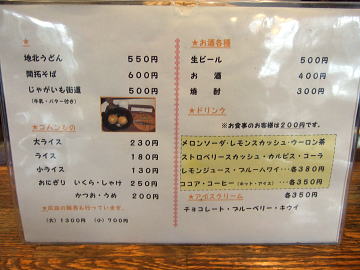 地北うどん 550円
開拓そば 600円
じゃがいも街道 500円
(牛乳・バター付き)
大ライス 230円
ライス 180円
小ライス 130円
おにぎり いくら・しゃけ 250円
かつお・うめ 200円
(大) 1300円 (小) 700円
★お酒各種
生ビール 500円
お酒 400円
焼酎 300円
★ドリンク
※お食事のお客様は200円です。
メロンソーダ・レモンスカッシュ・ウーロン茶
ストロベリースカッシュ・カルピス・コーラ
レモンジュース・ブルーハワイ…各380円
ココア・コーヒー(ホット・アイス)…各350円
★アイスクリーム 各350円
チョコレート・ブルーベリー・キウイ